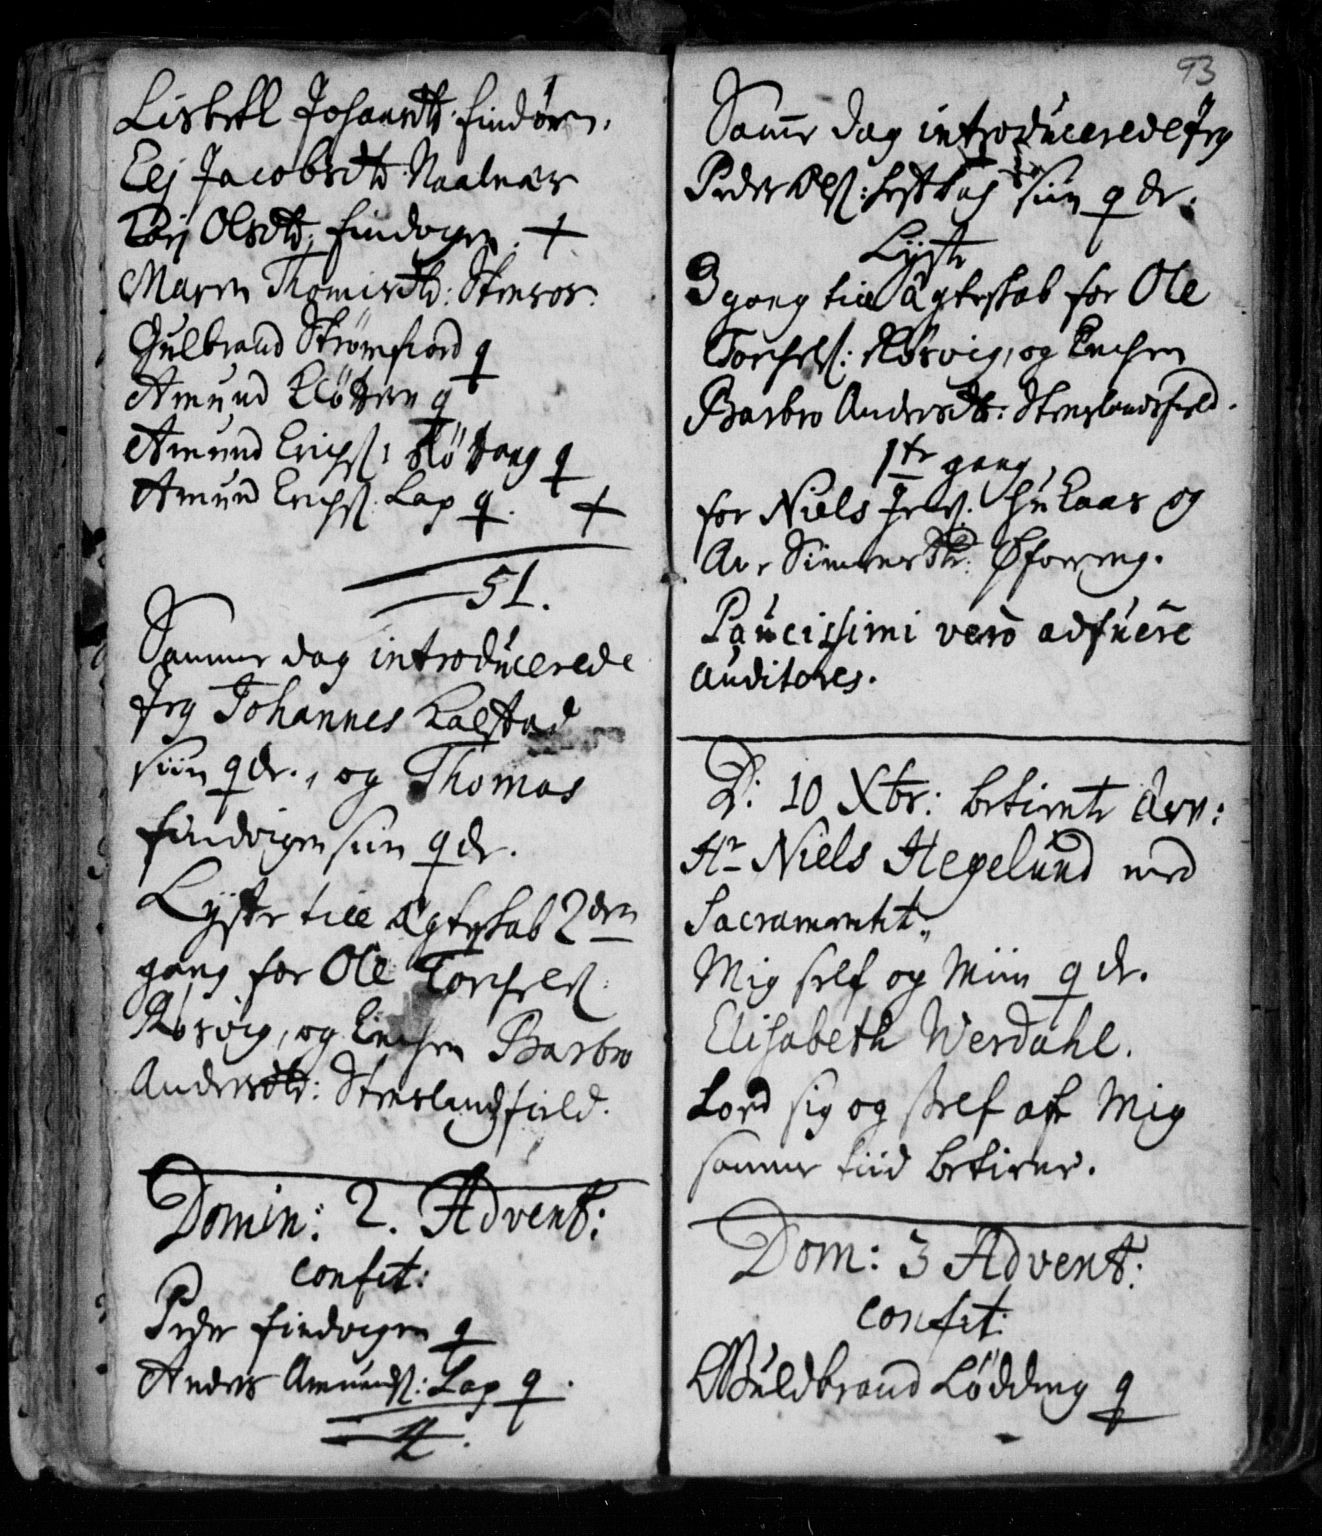 Lisbell Johansdtr: Findøren.
Elj Jacobsdtr Naalnæs
Kari Olsdtr: Findvigen. +
Maren Thomisdtr: Stensøs.
Gulbrand Strømfiord q
Amund Kløttern q
Amund Erichs: Kløttang q
Amund Erichs: Lap q. +
51.
Samme dag introducerede
Jeg Johannes Kalstad
siin q dr., og Thomas
Findvigen siin q dr.
Lyste till ægteskab 2den
gang for Ole Torchels:
Røsvig, og Enchen Barbro
Andersdtr: Stenslandsfield.
Domin: 2. Advent:
confit:
Peder Findvigen q
Anders Amunds: Lap q.
4.
93
Samme dag introducerede Jeg
Peder Ols: siin q dr.
Lyste
3 gang till ægteskab for Ole
Torchels: Røsvig, og Enchen
Barbro Andersdtr: Stenslandsfield.
1te gang
for Niels og
Simensdtr:
Paucissimi vero adfuere
auditores.
D: 10 Xbr: betiente
Hr Niels Hegelund med
Sacramentit,,
Mig self og Miin q dr.
Elisabeth Werdahl.
Loed sig og self aff Mig
samme tiid betiene.
Dom: 3 Advent:
confit:
Guldbrand Lødding q